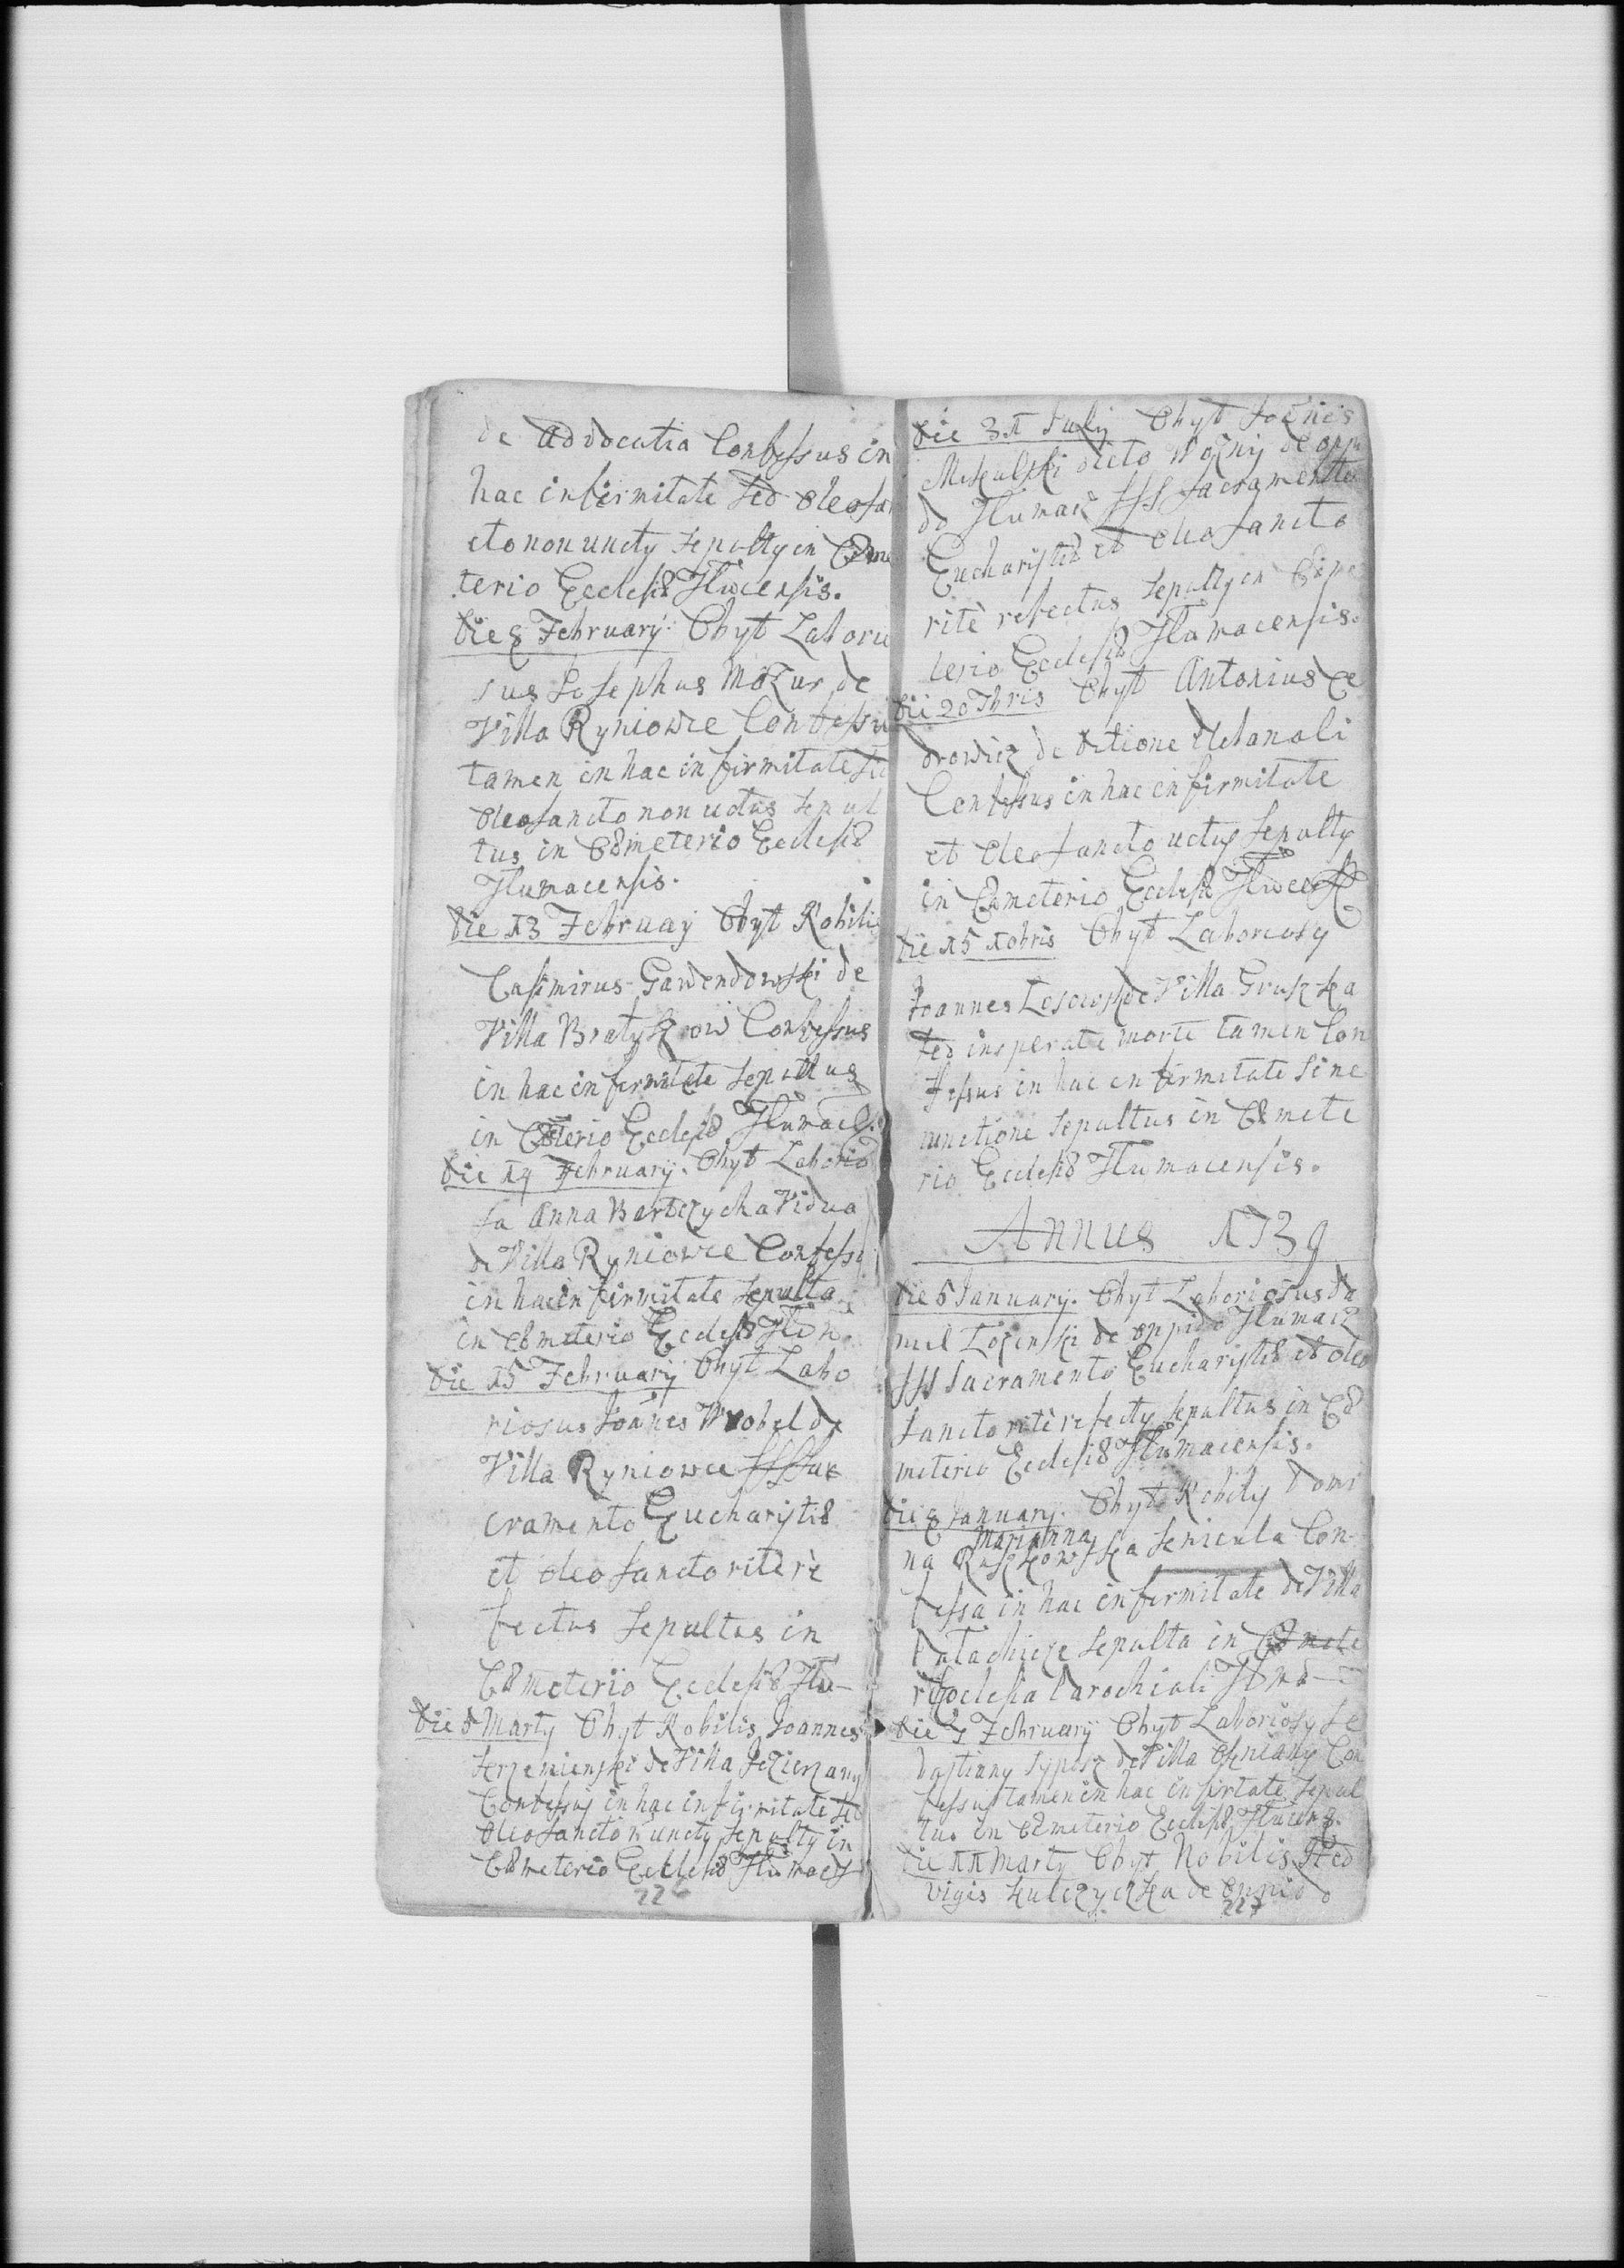 de Advocatia Confessus in
hac infirmitate sed oleo san
cto non unctꝯ sepultꝯ in Cæme
terio Ecclesiæ Tlucensis.
Die 8 February. Obyt Laborio
sus Josephus Mozur de
Villa Ryniowce Confessu
tamen in hac infirmitate sed
oleo sancto non uctus sepul
tus in Cæmeterio Ecclesiæ
Tlumacensis.
Die 13 February Obyt Nobilis
Casimirus Gawendowski de
Villa Bratyszow Confessus
in hac infirmitate sepultus
in Cæterio Ecclesiæ Tlumacs.
Die 14 February. Obyt Laborio
sa Anna Bartczycha Vidua
de Villa Ryniowce Confessa
in hac infirmitate sepulta
in Cæmeterio Ecclesiæ
Die 15 February Obyt Labo
riosus Joannes Wrobel de
Villa Ryniowce SSS Sa
cramento Eucharistiæ
et oleo sancto rite re
fectus sepultus in
Cæmeterio Ecclesiæ Tlu-
Die 8 Marty Obyt Nobilis Joannes
de Villa Jezierzany
Confessus in hac infirmitate sed
oleo sancto n unctꝯ sepultꝯ in
Cæmeterio Ecclesiæ Tlumacs
226
Die 31 July Obyt Joannes
dicto Wozny de oppi
do Tlumacz SSS Sacramento
Eucharistiæ et oleo sancto
ritè refectus sepultꝯ in Cæme
terio Ecclesiæ Tlumacensis.
Die 20 7bris Obyt Antonius Ce
drowicz de ditione
Confessus in hac infirmitate
et oleo sancto uctus sepultꝯ
in Cæmeterio Ecclesiæ
Die 15 10bris Obyt Laboriosꝯ
Joannes Losowski de Villa Gruszka
sed insperata morte tamen Con
fessus in hac infirmitate sine
unctione sepultus in Cæmete
rio Ecclesiæ Tlumacensis.
Annus 1739
Die 5 January. Obyt Laboriosus Da
niel Lozinski de oppido Tlumacz
SSS Sacramento Eucharistiæ et oleo
sancto ritè refectꝯ sepultus in Cæ
meterio Ecclesiæ Tlumacensis.
Die 8 January. Obyt Nobilis Domi
Marianna
na Ruszkowska senicula Con
fessa in hac infirmitate de Villa
Palachicze sepulta in Cæmete
ri Ecclesia Parochiali
Die 7 February Obyt Laboriosꝯ Se
bastianꝯ de Villa Con
fessus tamen in hac infirtate sepul
tus in Cæmeterio Ecclesiæ
Die 11 Marty Obyt Nobilis Hed
vigis Kulczycka de oppido
227